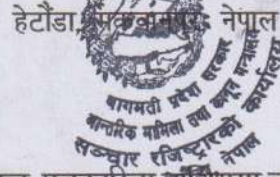 हेटौंडा, मकवानपुर, नेपाल
बागमती प्रदेश सरकार
आन्तरिक मामिला तथा कानून मन्त्रालय
सञ्चार रजिष्ट्रारको कार्यालय
नेपाल